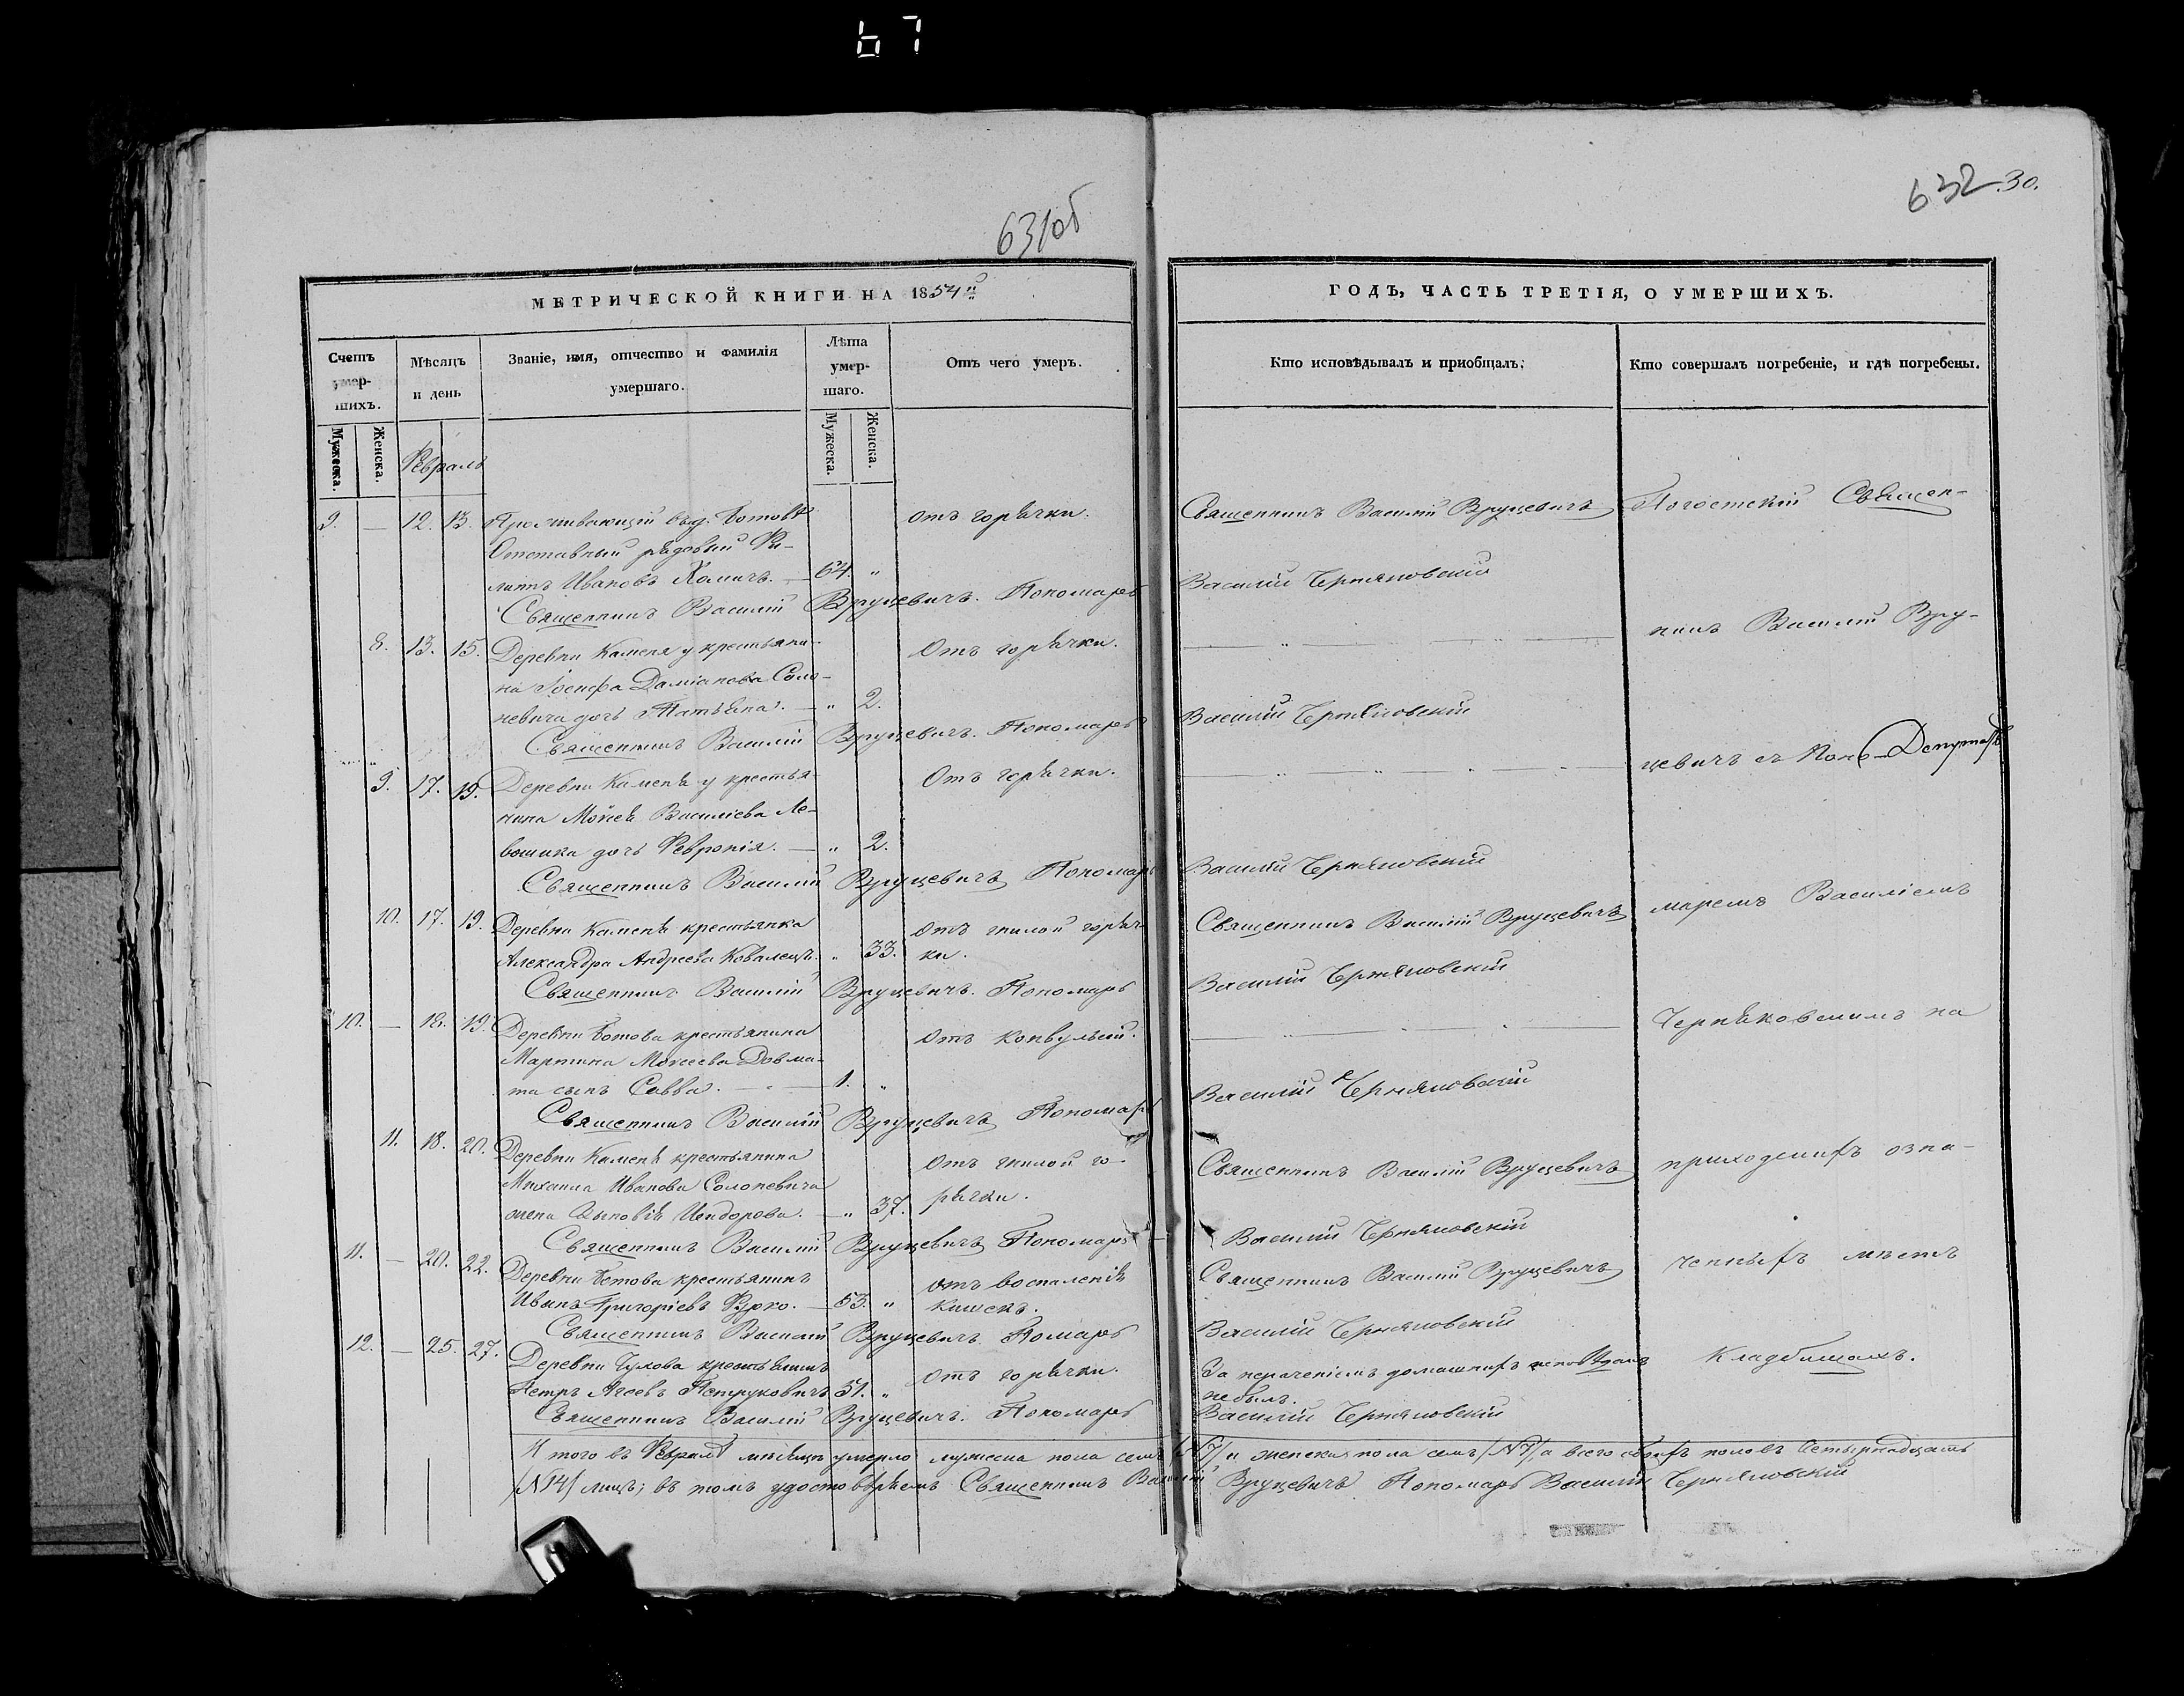 67
631об
632 30.
МЕТРИЧЕСКОЙ КНИГИ НА 1854й
ГОДЪ, ЧАСТЬ ТРЕТІЯ, О УМЕРШИХЪ.
Счетъ умер-шихъ.
Мѣсяцъ и день
Званіе, имя, отчество и фамилія умершаго.
Лѣта умер-шаго.
Отъ чего умеръ.
Кто исповѣдывалъ и пріобщалъ.
Кто совершалъ погребеніе, и гдѣ погребены.
Мужеска.
Женска.
Февраль
Мужеска.
Женска.
9. — 12. 13. Проживающій въ д.
отъ горячки.
Священникъ Василій Вруцевичъ
Погостскій Священ-
Отставный рядовый Фи-
липъ Ивановъ Хомичъ. — 64. „
Священникъ Василій Вруцевичъ. Пономарь Василій Черняковскій
никъ Василій Вру-
8. 13. 15. Деревни Каменя у крестьяни-
Отъ горячки.
на Іосифа Даміанова Соло-
невича дочь Татьяна. — „ 2.
Священникъ Василій Вруцевичъ. Пономарь Василій Черняковскій
цевичъ съ Поно-
9. 17. 19. Деревни Каменя у крестья-
Отъ горячки.
нина Моисея Василіева Ле-
вошика дочь Февронія. — „ 2.
Священникъ Василій Вруцевичъ Пономарь Василій Черняковскій
10. 17. 19. Деревни Каменя крестьянка
отъ гнилой горяч-
Священникъ Василій Вруцевичъ
маремъ Василіемъ
Александра Андреева Ковалецъ. „ 33. ки.
Священникъ Василій Вруцевичъ. Пономарь Василій Черняковскій
10. — 18. 19. Деревни крестьянина
отъ конвульсій.
Черняковскимъ на
Мартина Моисеева Довма-
та сынъ Савва. — 1. „
Священникъ Василій Вруцевичъ Пономарь Василій Черняковскій
11. 18. 20. Деревни Каменя крестьянина
Отъ гнилой го-
Священникъ Василій Вруцевичъ
приходскихъ озна-
Михаила Иванова Солоневича
жена Зыновія Исидорова. — „ 37. рячки.
Священникъ Василій Вруцевичъ Пономарь Василій Черняковскій
11. — 20. 22. Деревни крестьянинъ
отъ воспаленія
Священникъ Василій Вруцевичъ
ченныхъ мѣстъ
Иванъ Григоріевъ Фурко. — 53. „ кишекъ.
Священникъ Василій Вруцевичъ Помарь Василій Черняковскій
12. — 25. 27. Деревни крестьянинъ
отъ горячки.
За нераченіемъ домашнихъ исповѣданъ
Кладбищахъ.
Петръ Петруковичъ 51. „
не былъ.
Священникъ Василій Вруцевичъ. Пономарь Василій Черняковскій
Итого въ Февралѣ мѣсяцѣ умерло мужеска пола семь /№7/ и женска пола семь /№7/, а всего обоихъ половъ четырнадцать
/№14/ лицъ; въ томъ удостовѣряемъ Священникъ Василій Вруцевичъ Пономарь Василій Черняковскій